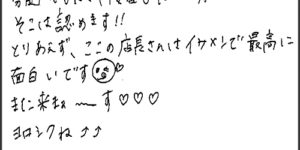 そこは認めます!!
とりあえず、ここの店長さんはイケメンで最高に
面白いです♡
また来まぁ〜す♡♡♡
ヨロシクね↑↑